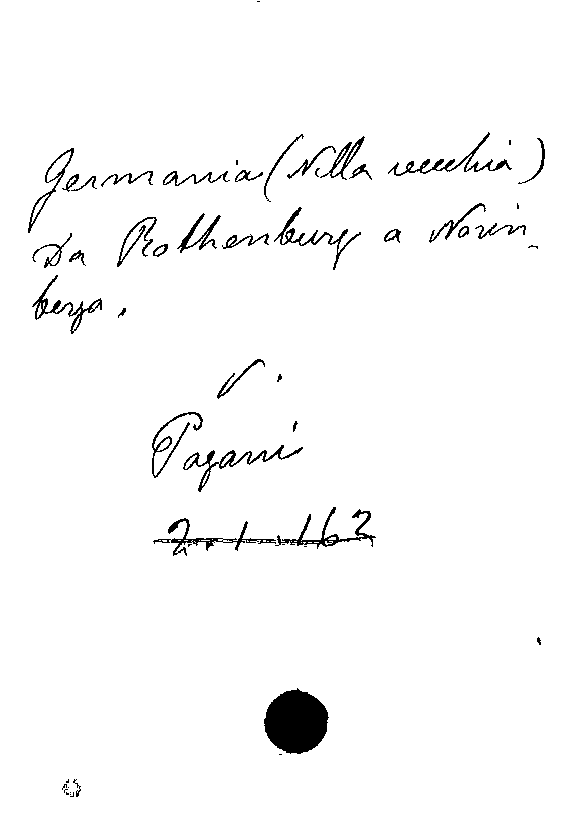 Germania (Nella vecchia)
Da Rothenburg a Norim-
berga.
V.
Pagani
2.1.162